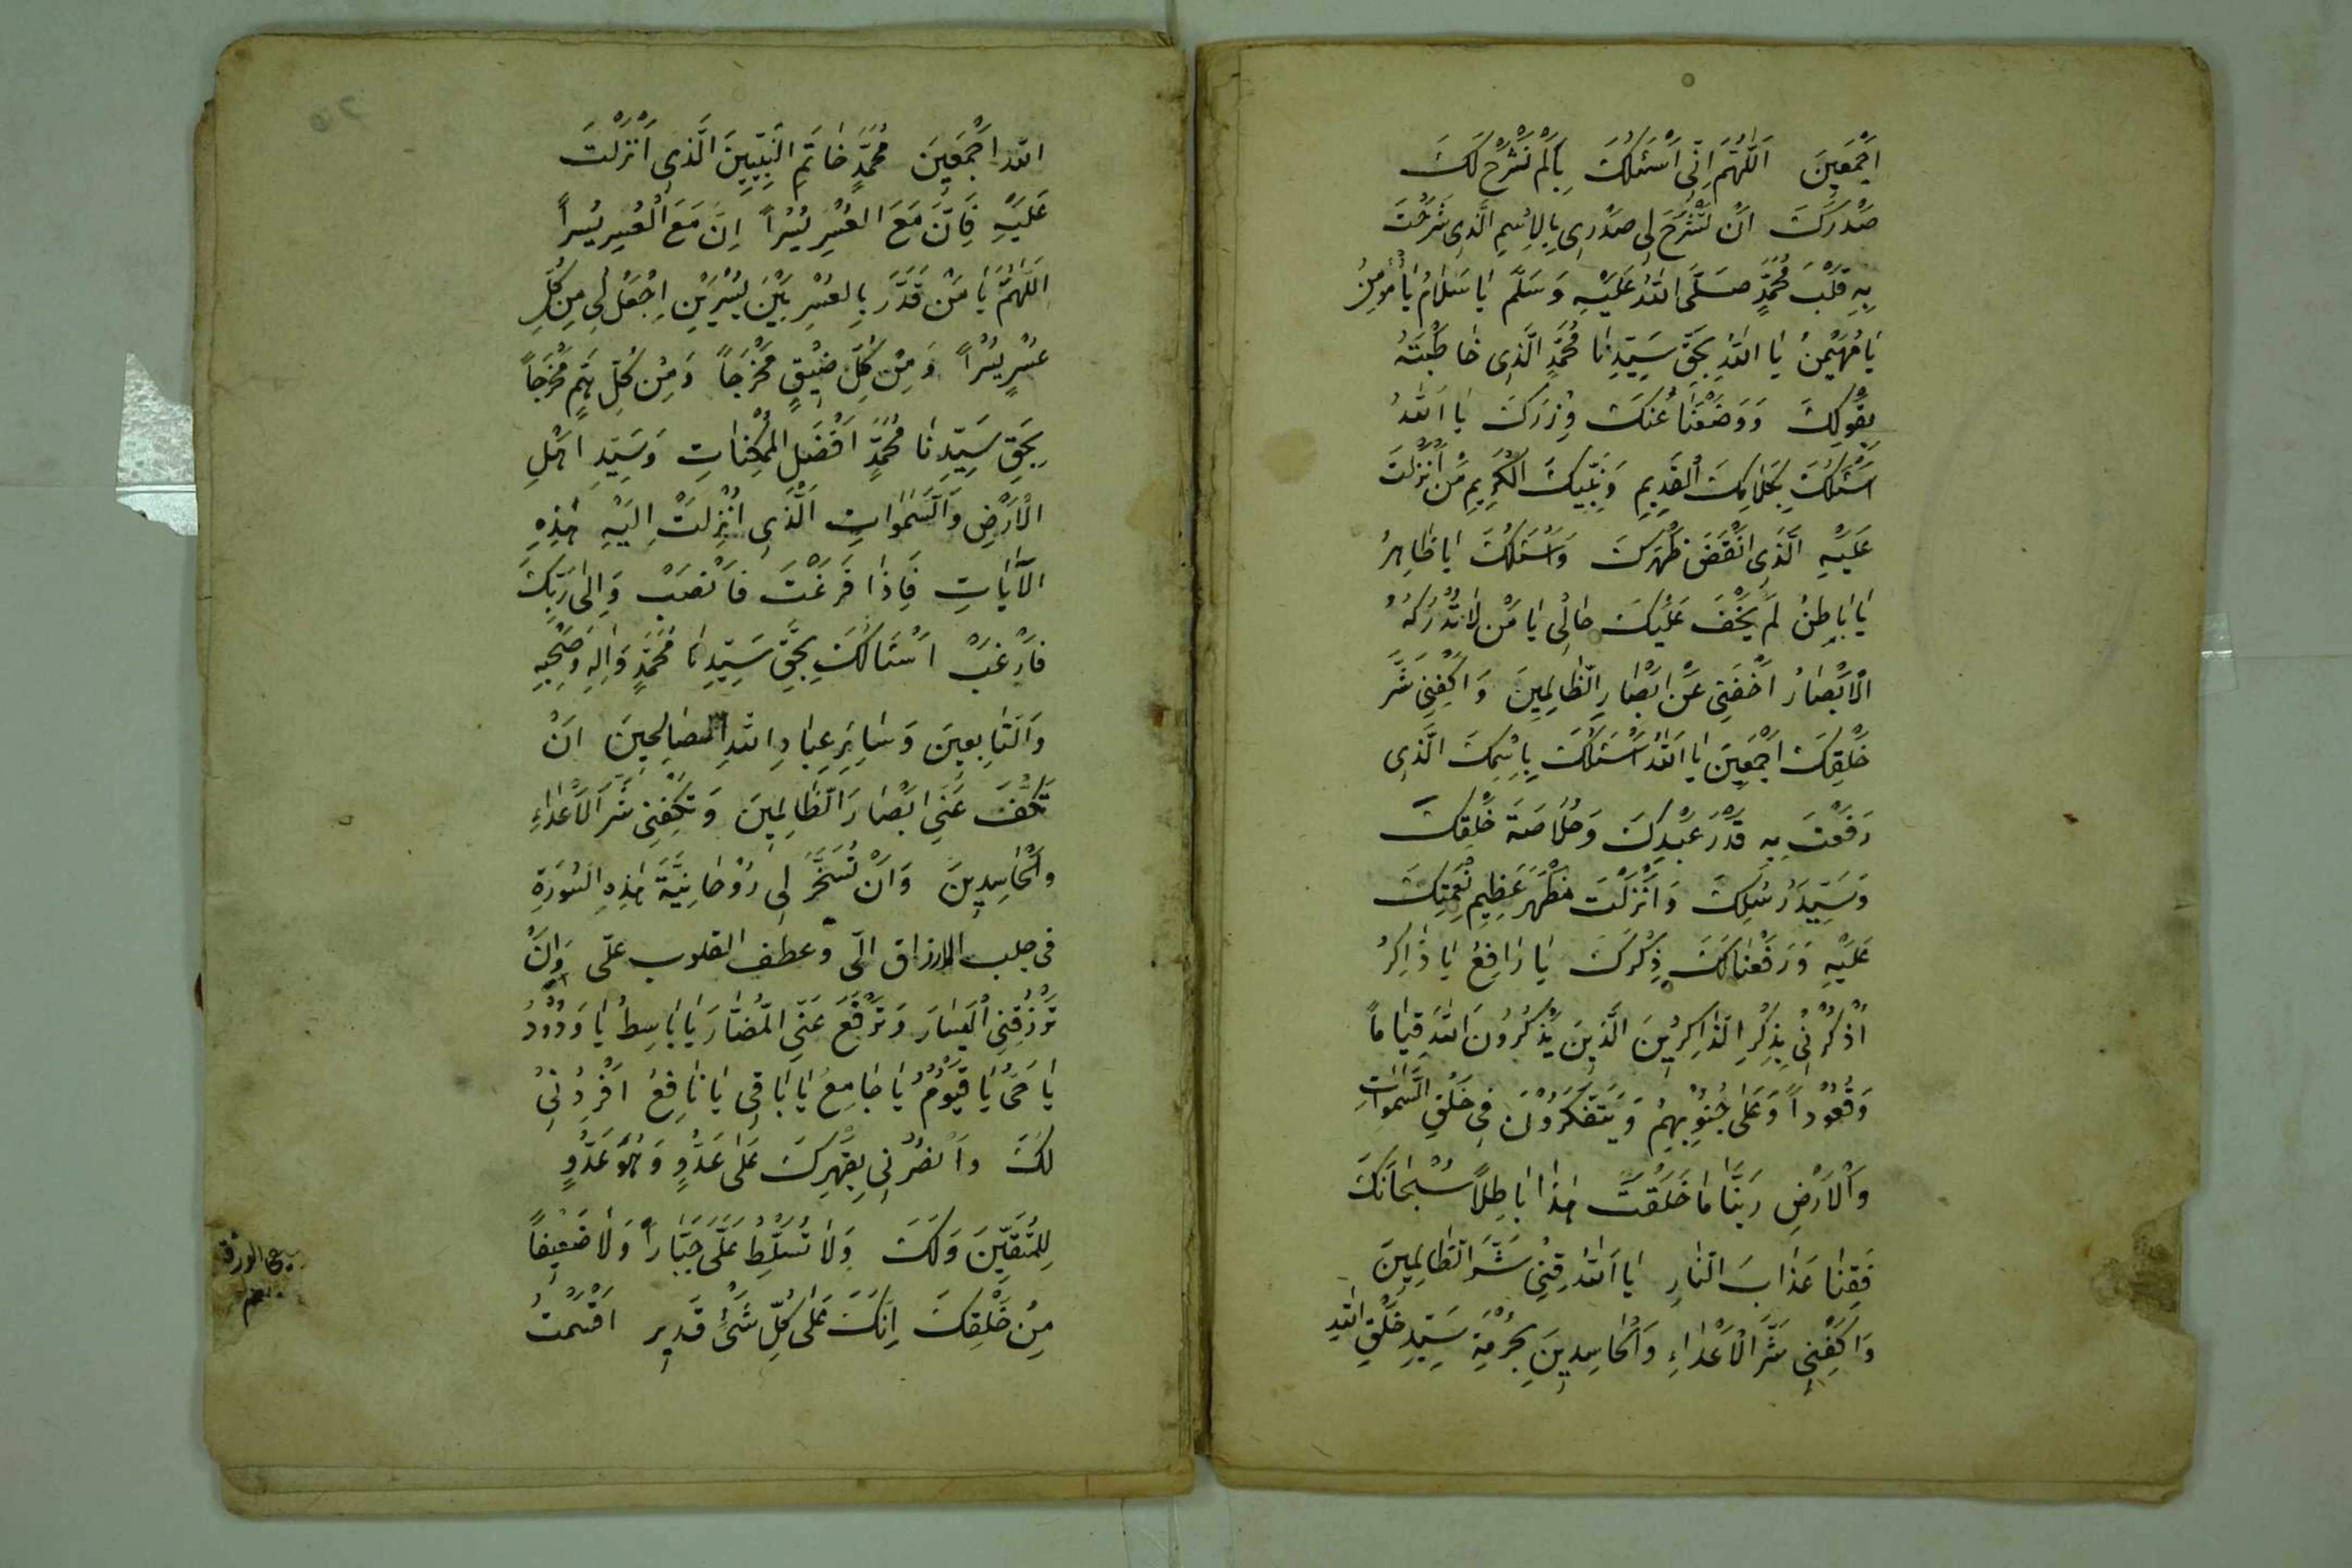 اَجْمَعِينَ اَللّٰهُمَّ اِنِّى اَسْئَلُكَ بِاَلَمْ نَشْرَحْ لَكَ
صَدْرَكَ اَنْ تَشْرَحَ لِى صَدْرِى بِالْاِسْمِ الَّذِى شَرَحْتَ
بِهِ قَلْبَ مُحَمَّدٍ صَلَّى اللّٰهُ عَلَيْهِ وَسَلَّم يَا سَلَامُ يَا مُؤْمِنُ
يَا مُهَيْمِنُ يَا اللّٰهُ بِحَقِّ سَيِّدِنَا مُحَمَّدٍ الَّذِى خَاطَبْتَهُ
بِقَوْلِكَ وَوَضَعْنَا عَنْكَ وِزْرَكَ يَا اَللّٰهُ
اَسْئَلُكَ بِكَلَامِكَ الْقَدِيمِ وَنَبِيِّكَ الْكَرِيمِ مَنْ اَنْزَلْتَ
عَلَيْهِ الَّذِى اَنْقَضَ ظَهْرَكَ وَاَسْئَلُكَ يَا ظَاهِرُ
يَا بَاطِنُ لَمْ يَخْفَ عَلَيْكَ حَالِى يَا مَنْ لَا تُدْرِكُهُ
الْاَبْصَارُ اَخْفَنِى عَنْ اَبْصَارِ الظَّالِمِينَ وَاكْفِنِى شَرَّ
خَلْقِكَ اَجْمَعِينَ يَا اَللّٰهُ اَسْئَلُكَ بِاِسْمِكَ الَّذِى
رَفَعْتَ بِهِ قَدْرَ عَبْدِكَ وَخُلَاصَة خَلْقِكَ
وَسَيِّدَ رُسُلِكَ وَاَنْزَلْتَ مَظْهَرَ عَظِيمِ نِعْمَتِكَ
عَلَيْهِ وَرَفَعْنَا لَكَ ذِكْرَكَ يَا رَافِعُ يَا ذَاكِرُ
اُذْكُرْنِى بِذِكْرِ الذَّاكِرِينَ الَّذِينَ يَذْكُرُونَ اللّٰهَ قِيَاماً
وَقُعُوداً وَعَلَى جُنُوبِهِمْ وَيَتَفَكَّرُونَ فِى خَلْقِ السَّمٰوَاتِ
وَالْاَرْضِ رَبَّنَا مَا خَلَقْتَ هٰذَا بَاطِلاً سُبْحَانَكَ
فَقِنَا عَذَابَ النَّارِ يَا اَللّٰهُ قِنِى شَرَّ الظَّالِمِينَ
وَاكْفِنِى شَرَّ الْاَعْدَاءِ وَالْحَاسِدِينَ بِحُرْمَةِ سَيِّدِ خَلْقِ اللّٰهِ
اللّٰه اَجْمَعِينَ مُحَمَّدٍ خَاتَمِ النَّبِيِّينَ الَّذِى اَنْزَلْتَ
عَلَيْهِ فَاِنَّ مَعَ الْعُسْرِ يُسْراً اِنَّ مَعَ الْعُسْرِ يُسْراً
اَللّٰهُمَّ يَا مَنْ قَدَّرَ بِالعُسْرِ بَيْنَ يُسْرَيْنِ اِجْعَلْ لِى مِنْ كُلِّ
عُسْرٍ يُسْراً وَمِنْ كُلِّ ضِيْقٍ مَخْرَجاً وَمِنْ كُلِّ هَمٍّ مَخْرَجاً
بِحَقِّ سَيِّدِنَا مُحَمَّدٍ اَفْضَلِ الْمُمْكِنَاتِ وَسَيِّدِ اَهْلِ
الْاَرْضِ وَالسَّمٰوَاتِ الَّذِى اُنْزِلَتْ اِلَيْهِ هٰذِهِ
الْآيَاتِ فَاِذَا فَرَغْتَ فَانْصَبْ وَاِلٰى رَبِّكَ
فَارْغَبْ اَسْئَالُكَ بِحَقِّ سَيِّدِنَا مُحَمَّدٍ وَاٰلِهِ وَصَحْبِهِ
وَالتَّابِعِينَ وَسَائِرِ عِبَادِ اللّٰهِ الصَّالِحِينَ اَنْ
تَكُفَّ عَنِّى اَبْصَارَ الظَّالِمِينَ وَتَكْفِنِى شَرَّ الْاَعْدَاءِ
وَالْحَاسِدِينَ وَاَنْ تُسَخِّرَ لِى رُوْحَانِيَّةَ هٰذِهِ السُّورَةِ
فى جلب الارزاق الىّ وعطف القلوب علّى وَاِنْ
تَرْزُقْنِى الْيَسَارَ وَتَرْفَعَ عَنِّى الْمَضَارَّ يَا بَاسِطُ يَا وَدُودُ
يَا حَىُّ يَا قَيُّوْمُ يَا جَامِعُ يَا بَاقِى يَا نَافِعُ اَفْرِدْنِى
لَكَ وَانْصُرْنِى بِقَهْرِكَ عَلَى عَدُوٍّ وَهُوَ عَدُوٍّ
لِلْمُتَّقِينَ وَلَكَ وَلَا تُسَلِّطْ عَلَىَّ جَبَّاراً وَلَا ضَعِيفاً
مِنْ خَلْقِكَ اِنَّكَ عَلَى كُلِّ شَىْءٍ قَدِير اَقْسَمْتُ